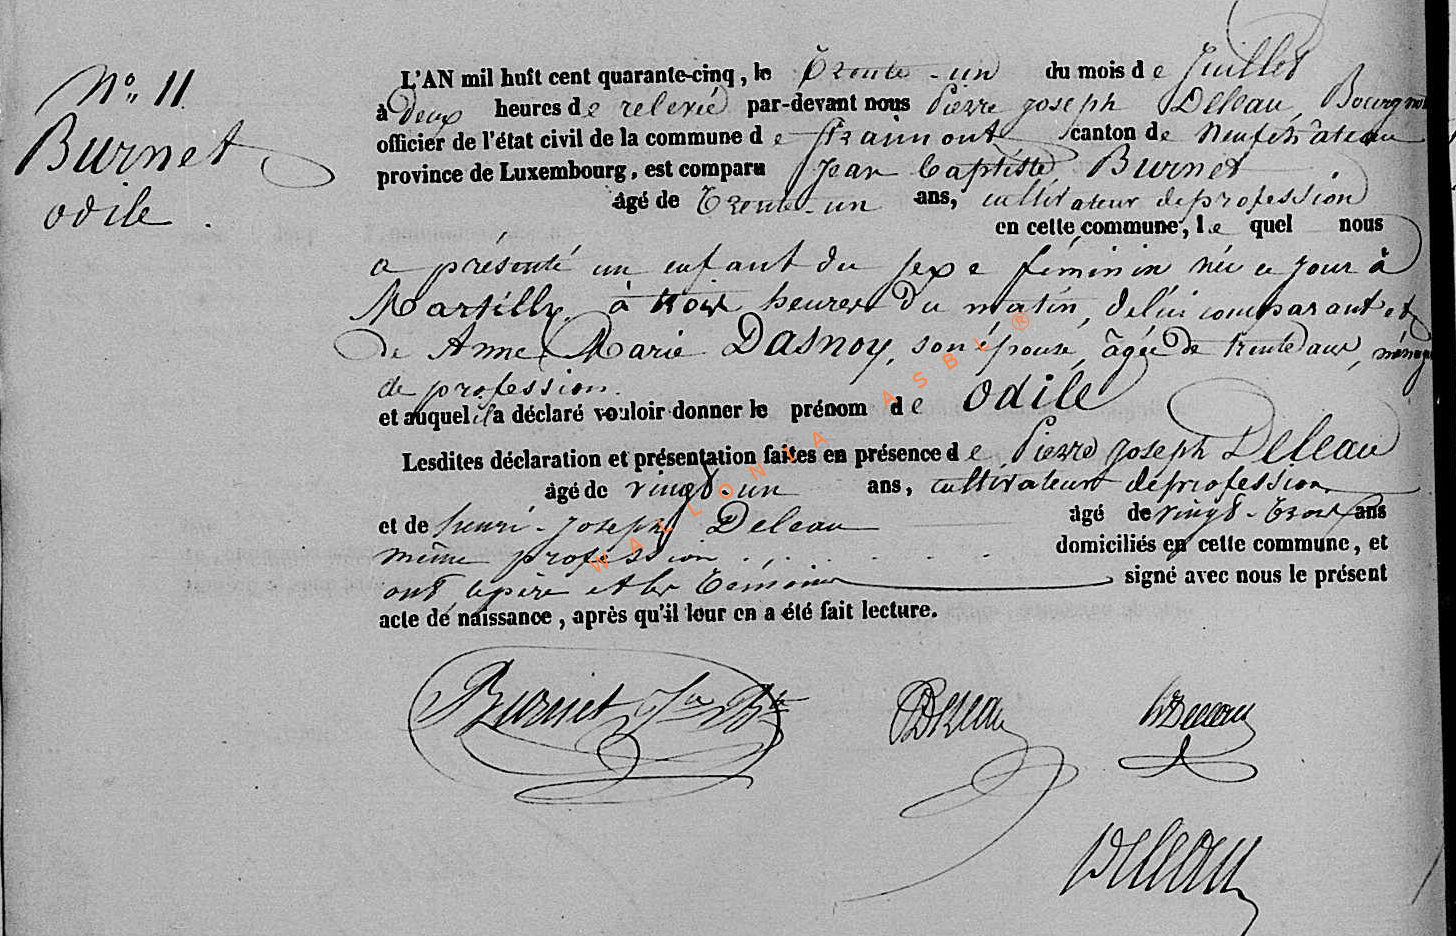 N° 11
Burnet
odile
L'AN mil huit cent quarante-cinq, le Trente-un du mois de Juillet
à Deux heures de relevée par-devant nous Pierre joseph Deleau, Bourgm
officier de l'état civil de la commune de Straimont canton de Neufchâteau
province de Luxembourg, est comparu Jean baptiste Burnet
âgé de Trente-un ans, cultivateur de profession
en cette commune, lequel nous
a présenté un enfant du sexe féminin née ce jour à
Martilly à trois heures du matin, de lui comparant et
de Anne Marie Dasnoy, son épouse, âgée de trente deux, ménag
de profession.
et auquel il a déclaré vouloir donner le prénom de odile
Lesdites déclaration et présentation faites en présence de Pierre joseph Deleau
âgé de vingt-un ans, cultivateur de profession
et de henri-joseph Deleau âgé de vingt-trois ans
même profession domiciliés en cette commune, et
ont le père et les Témoins signé avec nous le présent
acte de naissance, après qu'il leur en a été fait lecture.
Burnet Jn Bte PDeleau hDeleau
Deleau
WALLONIA ASBL ®